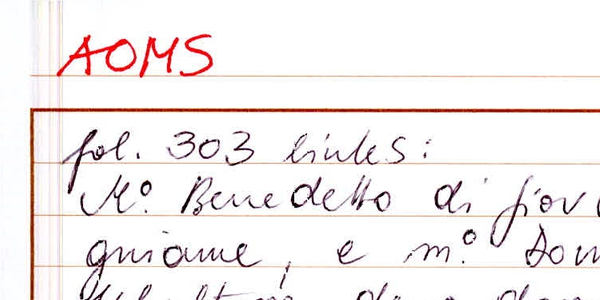 AOMS
fol. 303 links:
M.º Benedetto di Giov
gniame, e m.º Dom